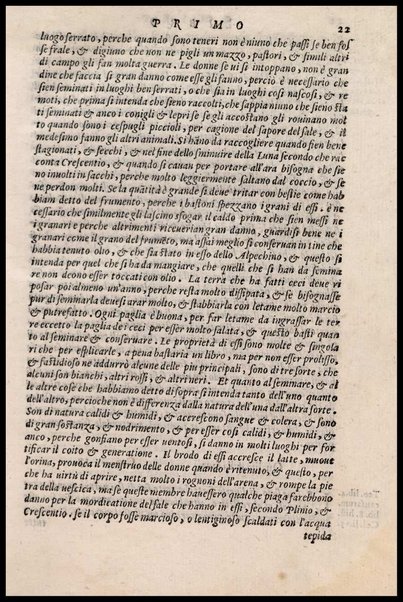 PRIMO
22
luogo serrato, perche quando sono teneri non è niuno che passi se ben fos
se frale, & digiuno che non ne pigli un mazzo, pastori, & simili altri
di campo gli fan molta guerra. Le donne se vi si intoppano, non è gran
dine che faccia si gran domno come esse gli fanno, perciò è necessario che
sien seminati in luoghi ben serrati, o che sia in luoghi così nascosi, & re
moti, che prima si intenda che sieno raccolti, che sappia niuno che sieno sta
ti seminati & anco i conigli & lepri se se gli accostano gli rouinano mol
to quando sono i cespugli piccioli, per cagione del sapore del sale, & il
medesimo fanno gli altri animali. Si hãno da raccogliere quando sien bene
stagionati, & secchi, & nel fine dello sminuire della Luna secondo che rac
conta Crescentio, & quando si cauan per portare all'ara bisogna che sie
no inuolti in sacchi, perche molto leggiermente saltano dal coccio, & se
ne perdon molti. Se la quãtità è grande si deue tritar con bestie come hab
biam detto del frumento, perche i bastoni spezzano i grani di essi, è ne
cessario che similmente gli lascino sfogar il caldo prima che sien messi ne
i granari e perche altrimenti riceuerian gran danno, guardisi bene ne i
granari come il grano del frumẽto, ma assai meglio si conseruan in tine che
habbia tenuto olio, & che sia stato in esso dello Alpechino, & questo si
intenda per quel che si ha da mangiare, che quelli che si han da semina
re non deono esser toccati con olio. La terra che ha fatti ceci deue ri
posar poi almeno un'anno, perche resta molto dissipata, & se bisognasse
pur di seminarla deuesi arar molto, & stabbiarla con letame molto marcio
& putrefatto. Ogni paglia è buona, per far letame da ingrassar le ter
re eccetto la paglia de ceci per esser molto salata, & questo basti quan
to al seminare & conseruare. Le proprietà di essi sono molte & singola
ri che per esplicarle, a pena bastaria un libro, ma per non esser prolisso,
& fastidioso ne addurrò alcune delle piu principali, sono di tre sorte, che
alcuni son bianchi, altri rossi, & altri neri. Et quanto al seminare, & al
le altre cose che habbiamo detto di sopra si intenda tanto dell'uno quanto
dell'altro, percioche non è differenza dalla natura dell'una dall'altra sorte.
Son di natura calidi & humidi, & acrescono sangue & colera, & sono
di gran sostanza, & nodrimento, & per esser così calidi, & humidi, &
anco, perche gonfiano per esser uentosi, si danno in molti luoghi per for
tificar il coito & generatione. Il brodo di essi accresce il latte, muoue
l'orina, prouoca il menstruo delle donne quando è ritenuto, & questo, per
che ha uirtù di aprire, netta molto i rognoni dell'arena, & rompe la pie
tra della uescica, ma se queste membre hauessero qualche piaga farebbono
danno per la mordicatione del sale che hanno in essi, secondo Plinio, &
Crescentio. se il corpo fosse marcioso, o lentiginoso scaldati con l'acqua
tepida